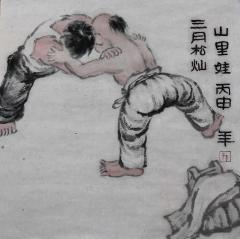 山里娃 丙申 年
三月松灿